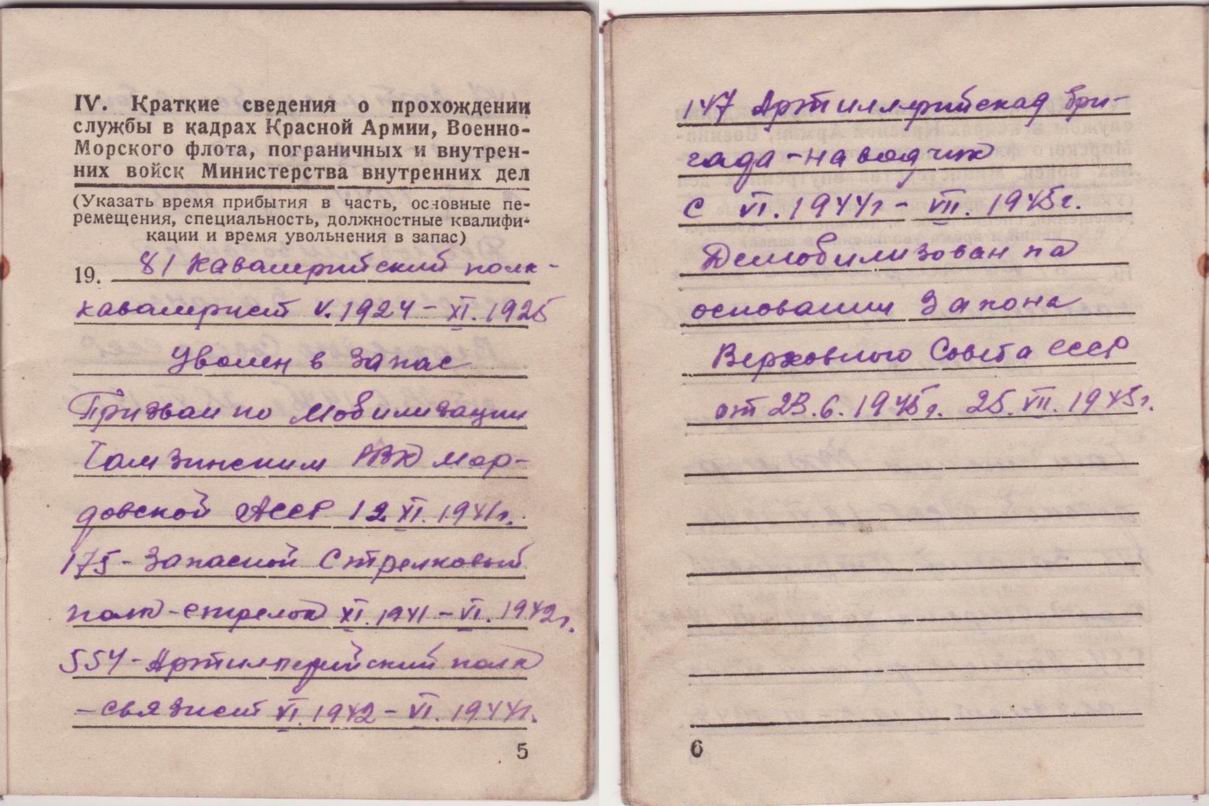 IV. Краткие сведения о прохождении
службы в кадрах Красной Армии, Военно-
Морского флота, пограничных и внутрен-
них войск Министерства внутренних дел
(Указать время прибытия в часть, основные пе-
ремещения, специальность, должностные квалифи-
кации и время увольнения в запас)
19. 81 Кавалерийский полк-
кавалерист V.1924 - XI.1925
Уволен в запас
Призван по мобилизации
РВК Мор-
довской АССР 12 XI.1941г.
175- Запасной Стрелковый
полк-стрелок XI.1941-VI.1942г.
554- Артиллерийский полк
-связист VI.1942 - VI.1944г.
5
147 Артиллерийская бри-
гада-наводчик
с VI.1944г - VII.1945г.
Демобилизован на
основании Закона
Верховного Совета СССР
от 23.6.1945г. 25.VII.1945г.
6